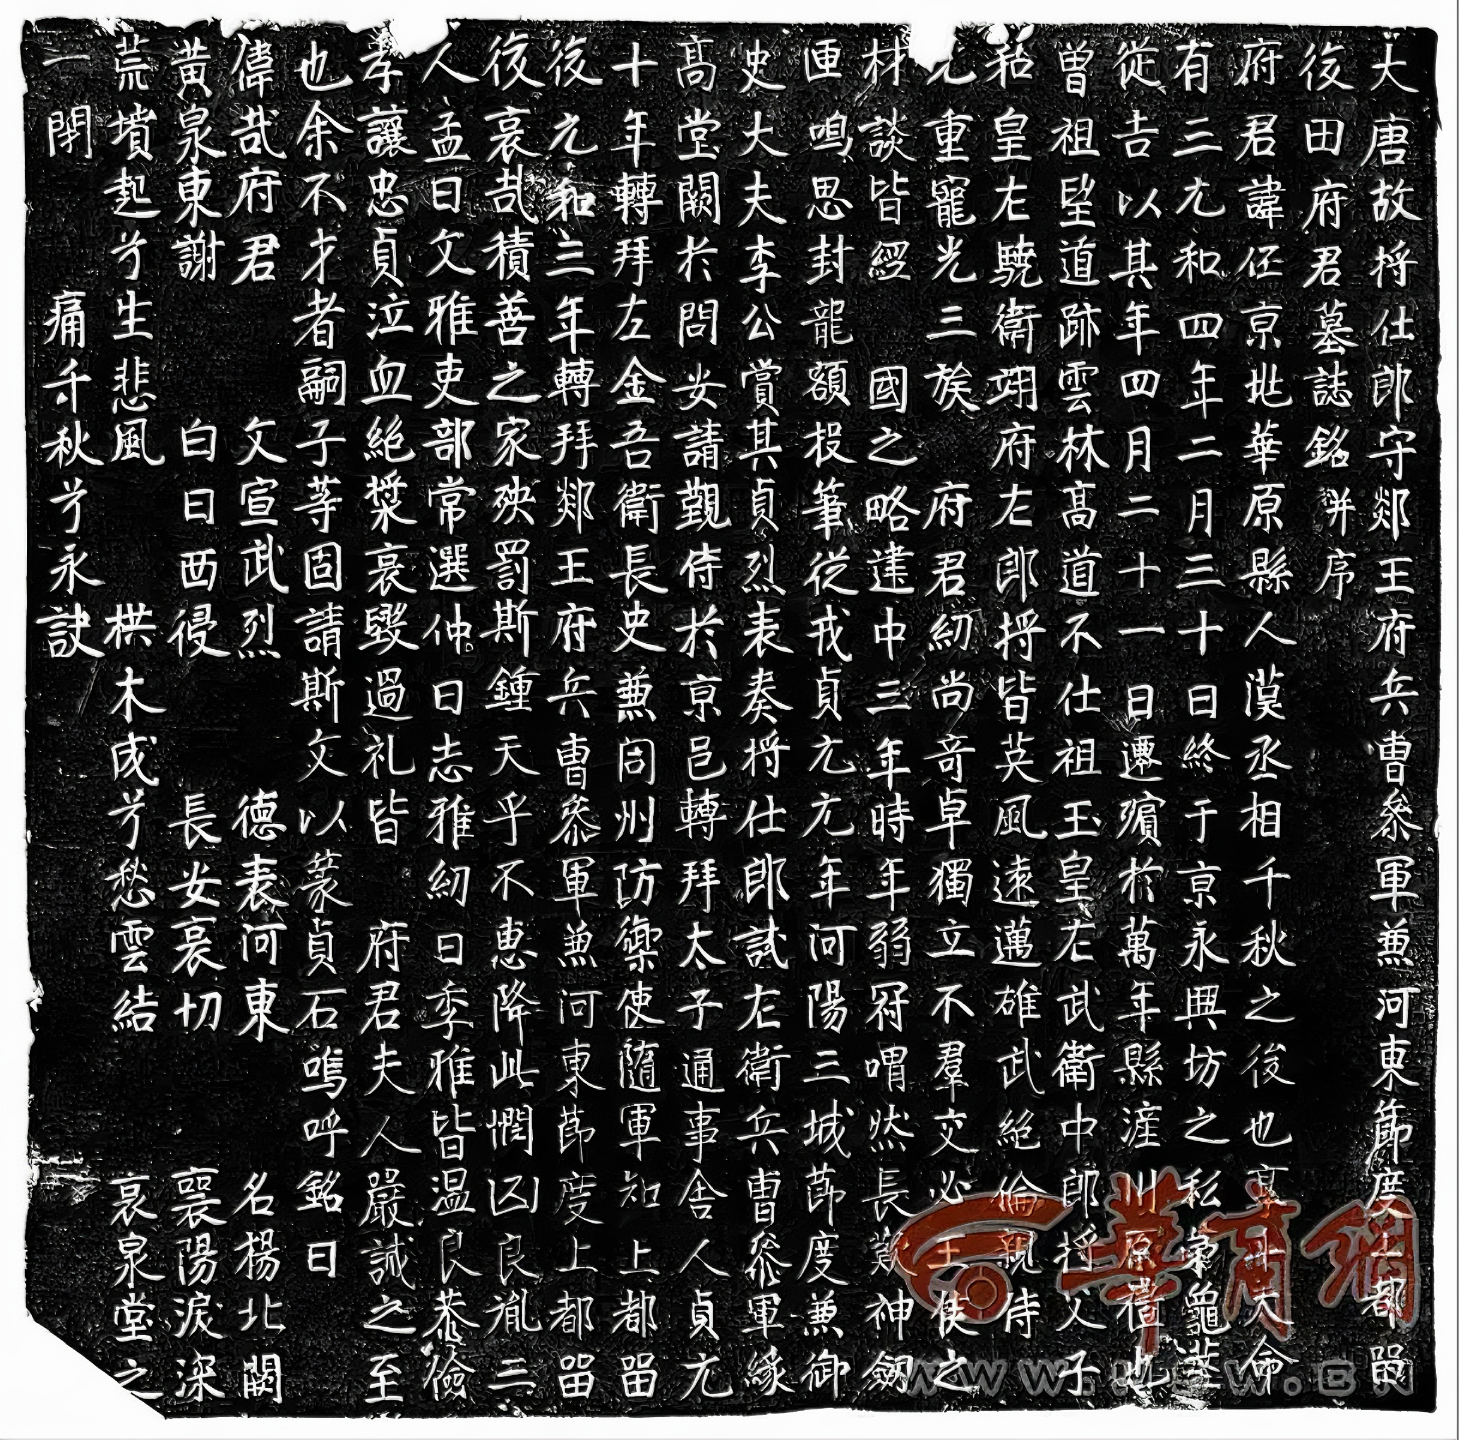 大唐故将仕郎守郯王府兵曹叅軍兼河東莭度上都留
後田府君墓誌銘并序
府君諱伾京兆華原縣人漢丞相千秋之後也享年大命
有三元和四年二月三十日終于京永興坊之私龜筮
從吉以其年四月二十一日遷殯於萬年縣滻川原禮也
曾祖望道跡雲林高道不仕祖玉皇左武衛中郎将父子
祐皇右驍衛翊府左郎将皆英風遠邁雄武絶倫親侍
九重寵光三族 府君紉尚奇卓獨立不羣交必王侯之
材談皆經 國之略建中三年時年弱冠喟然長歎神劔
匣鳴思封龍額投筆從戎貞元元年河陽三城莭度兼御
史大夫李公賞其貞烈表奏将仕郎試左衛兵曹叅軍緣
髙堂闕於問安請覲侍於京邑轉拜太子通事舍人貞元
十年轉拜左金吾衛長史兼同州防禦使随軍知上都留
後元和三年轉拜郯王府兵曹叅軍兼河東莭度上都留
後哀哉積善之家殃罰斯鍾天乎不惠降此憫凶良胤三
人孟曰文雅吏部常選仲曰志雅紉曰季雅皆温良恭儉
孝讓忠貞泣血絶漿哀毀過礼皆 府君夫人嚴誡之至
也余不才者嗣子等固請斯文以篆貞石嗚呼銘曰
偉哉府君 文宣武烈 德表河東 名楊北闕
黃泉東謝 白日西侵 長女哀切 襄陽淚深
荒墳起兮生悲風 栱木成兮愁雲結 哀泉堂之
一閉 痛千秋兮永訣
華商網
WWW.HSW.CN